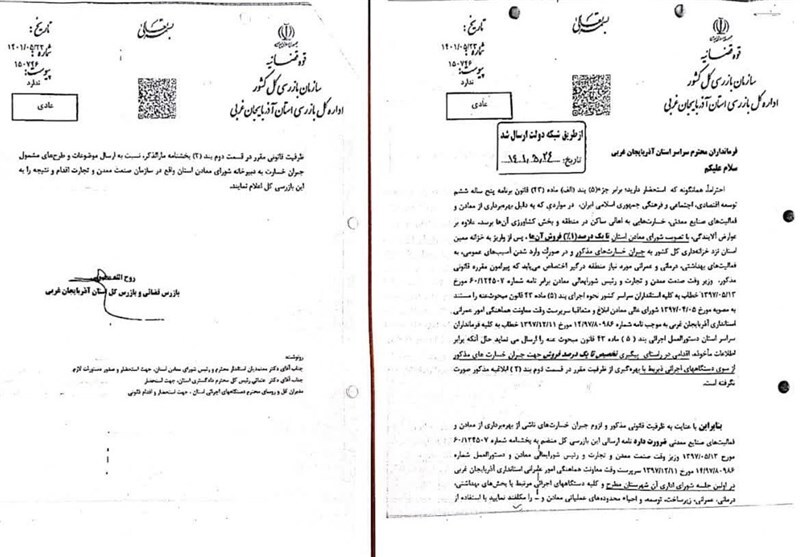 بسمه تعالی
جمهوری اسلامی ایران
قوه قضائیه
سازمان بازرسی کل کشور
اداره کل بازرسی استان آذربایجان غربی
تاریخ: ۱۴۰۱/۰۵/۲۳
شماره: ۱۵۰۷۴۶
پیوست: ندارد
عادی
از طریق شبکه دولت ارسال شد
تاریخ:
فرمانداران محترم سراسر استان آذربایجان غربی
سلام علیکم
احتراماً، همانگونه که استحضار دارید؛ برابر جزء (۵) بند (الف) ماده (۴۳) قانون برنامه پنج ساله ششم
توسعه اقتصادی، اجتماعی و فرهنگی جمهوری اسلامی ایران، در مواردی که به دلیل بهره‌برداری از معادن و
فعالیت‌های صنایع معدنی، خساراتی به اهالی ساکن در منطقه و بخش کشاورزی آن‌ها برسد، علاوه بر
عوارض آلایندگی، با تصویب شورای معادن استان تا یک درصد (۱٪) فروش آن‌ها، پس از واریز به خزانه معین
استان نزد خزانه‌داری کل کشور به جبران خسارت‌های مذکور و در صورت وارد شدن آسیب‌های عمومی، به
فعالیت‌های بهداشتی، درمانی و عمرانی مورد نیاز منطقه درگیر اختصاص می‌یابد که پیرامون مقرره قانونی
مذکور، وزیر وقت صنعت معدن و تجارت و رئیس شورایعالی معادن برابر نامه شماره ۶۰/۱۲۴۵۰۷ مورخ
۱۳۹۷/۰۵/۱۳ خطاب به کلیه استانداران سراسر کشور نحوه اجرای بند (۵) ماده ۴۳ قانون مبحوث‌عنه را مستند
به مصوبه مورخ ۱۳۹۷/۰۴/۰۵ شورای عالی معادن ابلاغ و متعاقباً سرپرست وقت معاونت هماهنگی امور عمرانی
استانداری آذربایجان غربی به موجب نامه شماره ۱۴/۹۷/۸۰۹۸۶ مورخ ۱۳۹۷/۱۲/۱۱ خطاب به کلیه فرمانداران
سراسر استان دستورالعمل اجرائی بند (۵) ماده ۴۳ قانون مبحوث عنه را ارسال می نماید حال آنکه برابر
اطلاعات مأخوذه، اقدامی در راستای پیگیری تخصیص تا یک درصد فروش جهت جبران خسارت های مذکور
از سوی دستگاههای اجرائی ذیربط با بهره‌گیری از ظرفیت مقرر در قسمت دوم بند (۲) ابلاغیه مذکور صورت
نگرفته است.
بنابراین با عنایت به ظرفیت قانونی مذکور و لزوم جبران خسارت‌های ناشی از بهره‌برداری از معادن و
فعالیت‌های صنایع معدنی ضرورت دارد نامه ارسالی این بازرسی کل منضم به بخشنامه شماره ۶۰/۱۲۴۵۰۷
مورخ ۱۳۹۷/۰۵/۱۳ وزیر وقت صنعت معدن و تجارت و رئیس شورایعالی معادن و دستورالعمل شماره
۱۴/۹۷/۸۰۹۸۶ مورخ ۱۳۹۷/۱۲/۱۱ سرپرست وقت معاونت هماهنگی امور عمرانی استانداری آذربایجان غربی
در اولین جلسه شورای اداری آن شهرستان مطرح و کلیه دستگاههای اجرائی مرتبط با بخش‌های بهداشتی،
درمانی، عمرانی، زیرساخت، توسعه، و احیاء محدوده‌های عملیاتی معادن و را مکلف نمایید با استفاده از
بسمه تعالی
قوه قضائیه
سازمان بازرسی کل کشور
اداره کل بازرسی استان آذربایجان غربی
تاریخ: ۱۴۰۱/۰۵/۲۳
شماره: ۱۵۰۷۴۶
پیوست: ندارد
عادی
ظرفیت قانونی مقرر در قسمت دوم بند (۲) بخشنامه مارالذکر، نسبت به ارسال موضوعات و طرح‌های مشمول
جبران خسارت به دبیرخانه شورای معادن استان واقع در سازمان صنعت معدن و تجارت اقدام و نتیجه را به
این بازرسی کل اعلام نمایند.
روح الله
بازرس قضائی و بازرس کل استان آذربایجان غربی
رونوشت:
جناب آقای دکتر معتمدیان استاندار محترم و رئیس شورای معادن استان، جهت استحضار و صدور دستورات لازم
جناب آقای دکتر عتباتی رئیس کل محترم دادگستری استان، جهت استحضار
مدیران کل و روسای محترم دستگاههای اجرائی استان، جهت استحضار و اقدام قانونی